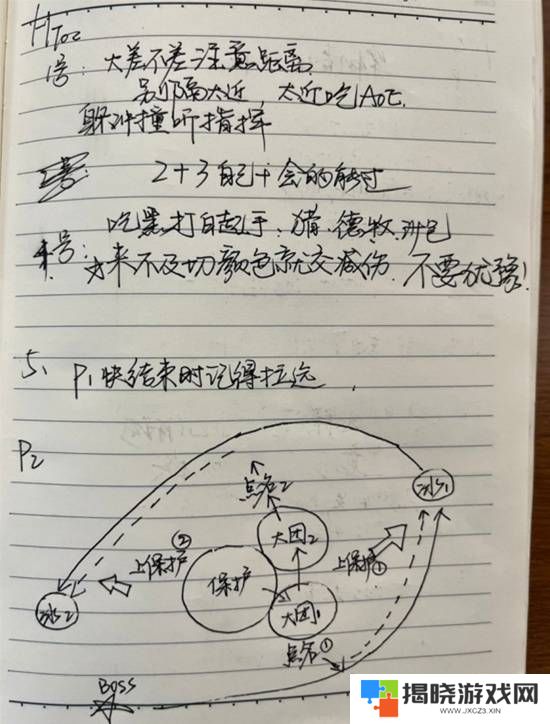 HToc
1号: 大差不差注意距离
别隔太近, 太近吃AOE.
躲冲撞听指挥
2+3 自己 会的能过
吃黑打白起手, 猎、德、牧
4号: 来不及切颜色就交减伤. 不要犹豫!
5、 P1快结束时记得拉远
P2
点名2
冰1
大团2
上保护②
保护
上保护①
大团1
冰2
点名①
BOSS
揭晓游戏网
WWW.JXCZ3.XIN